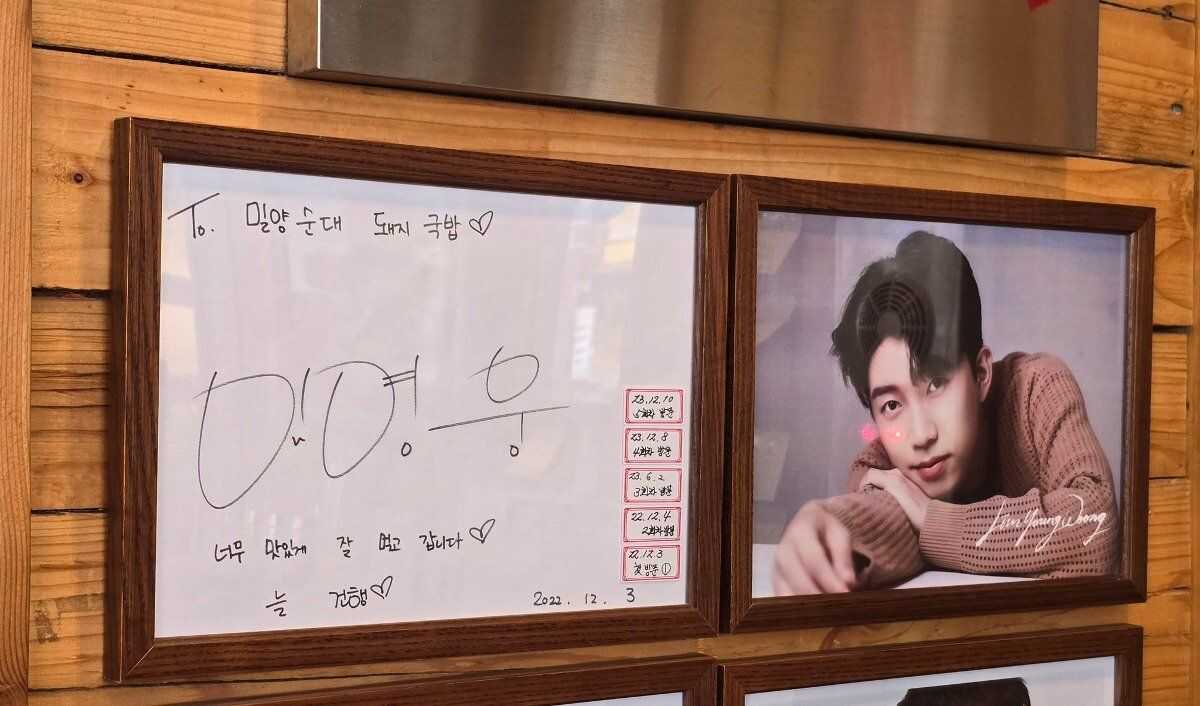 To. 밀양순대 돼지 국밥♡
임영웅
너무 맛있게 잘 먹고 갑니다♡
늘 건행♡
2022. 12. 3
23.12.10
5회차 방문
23.12.8
4회차 방문
23.6.2
3회차 방문
22.12.4
2회차 방문
22.12.3
첫 방문 ①
Lim Young Woong